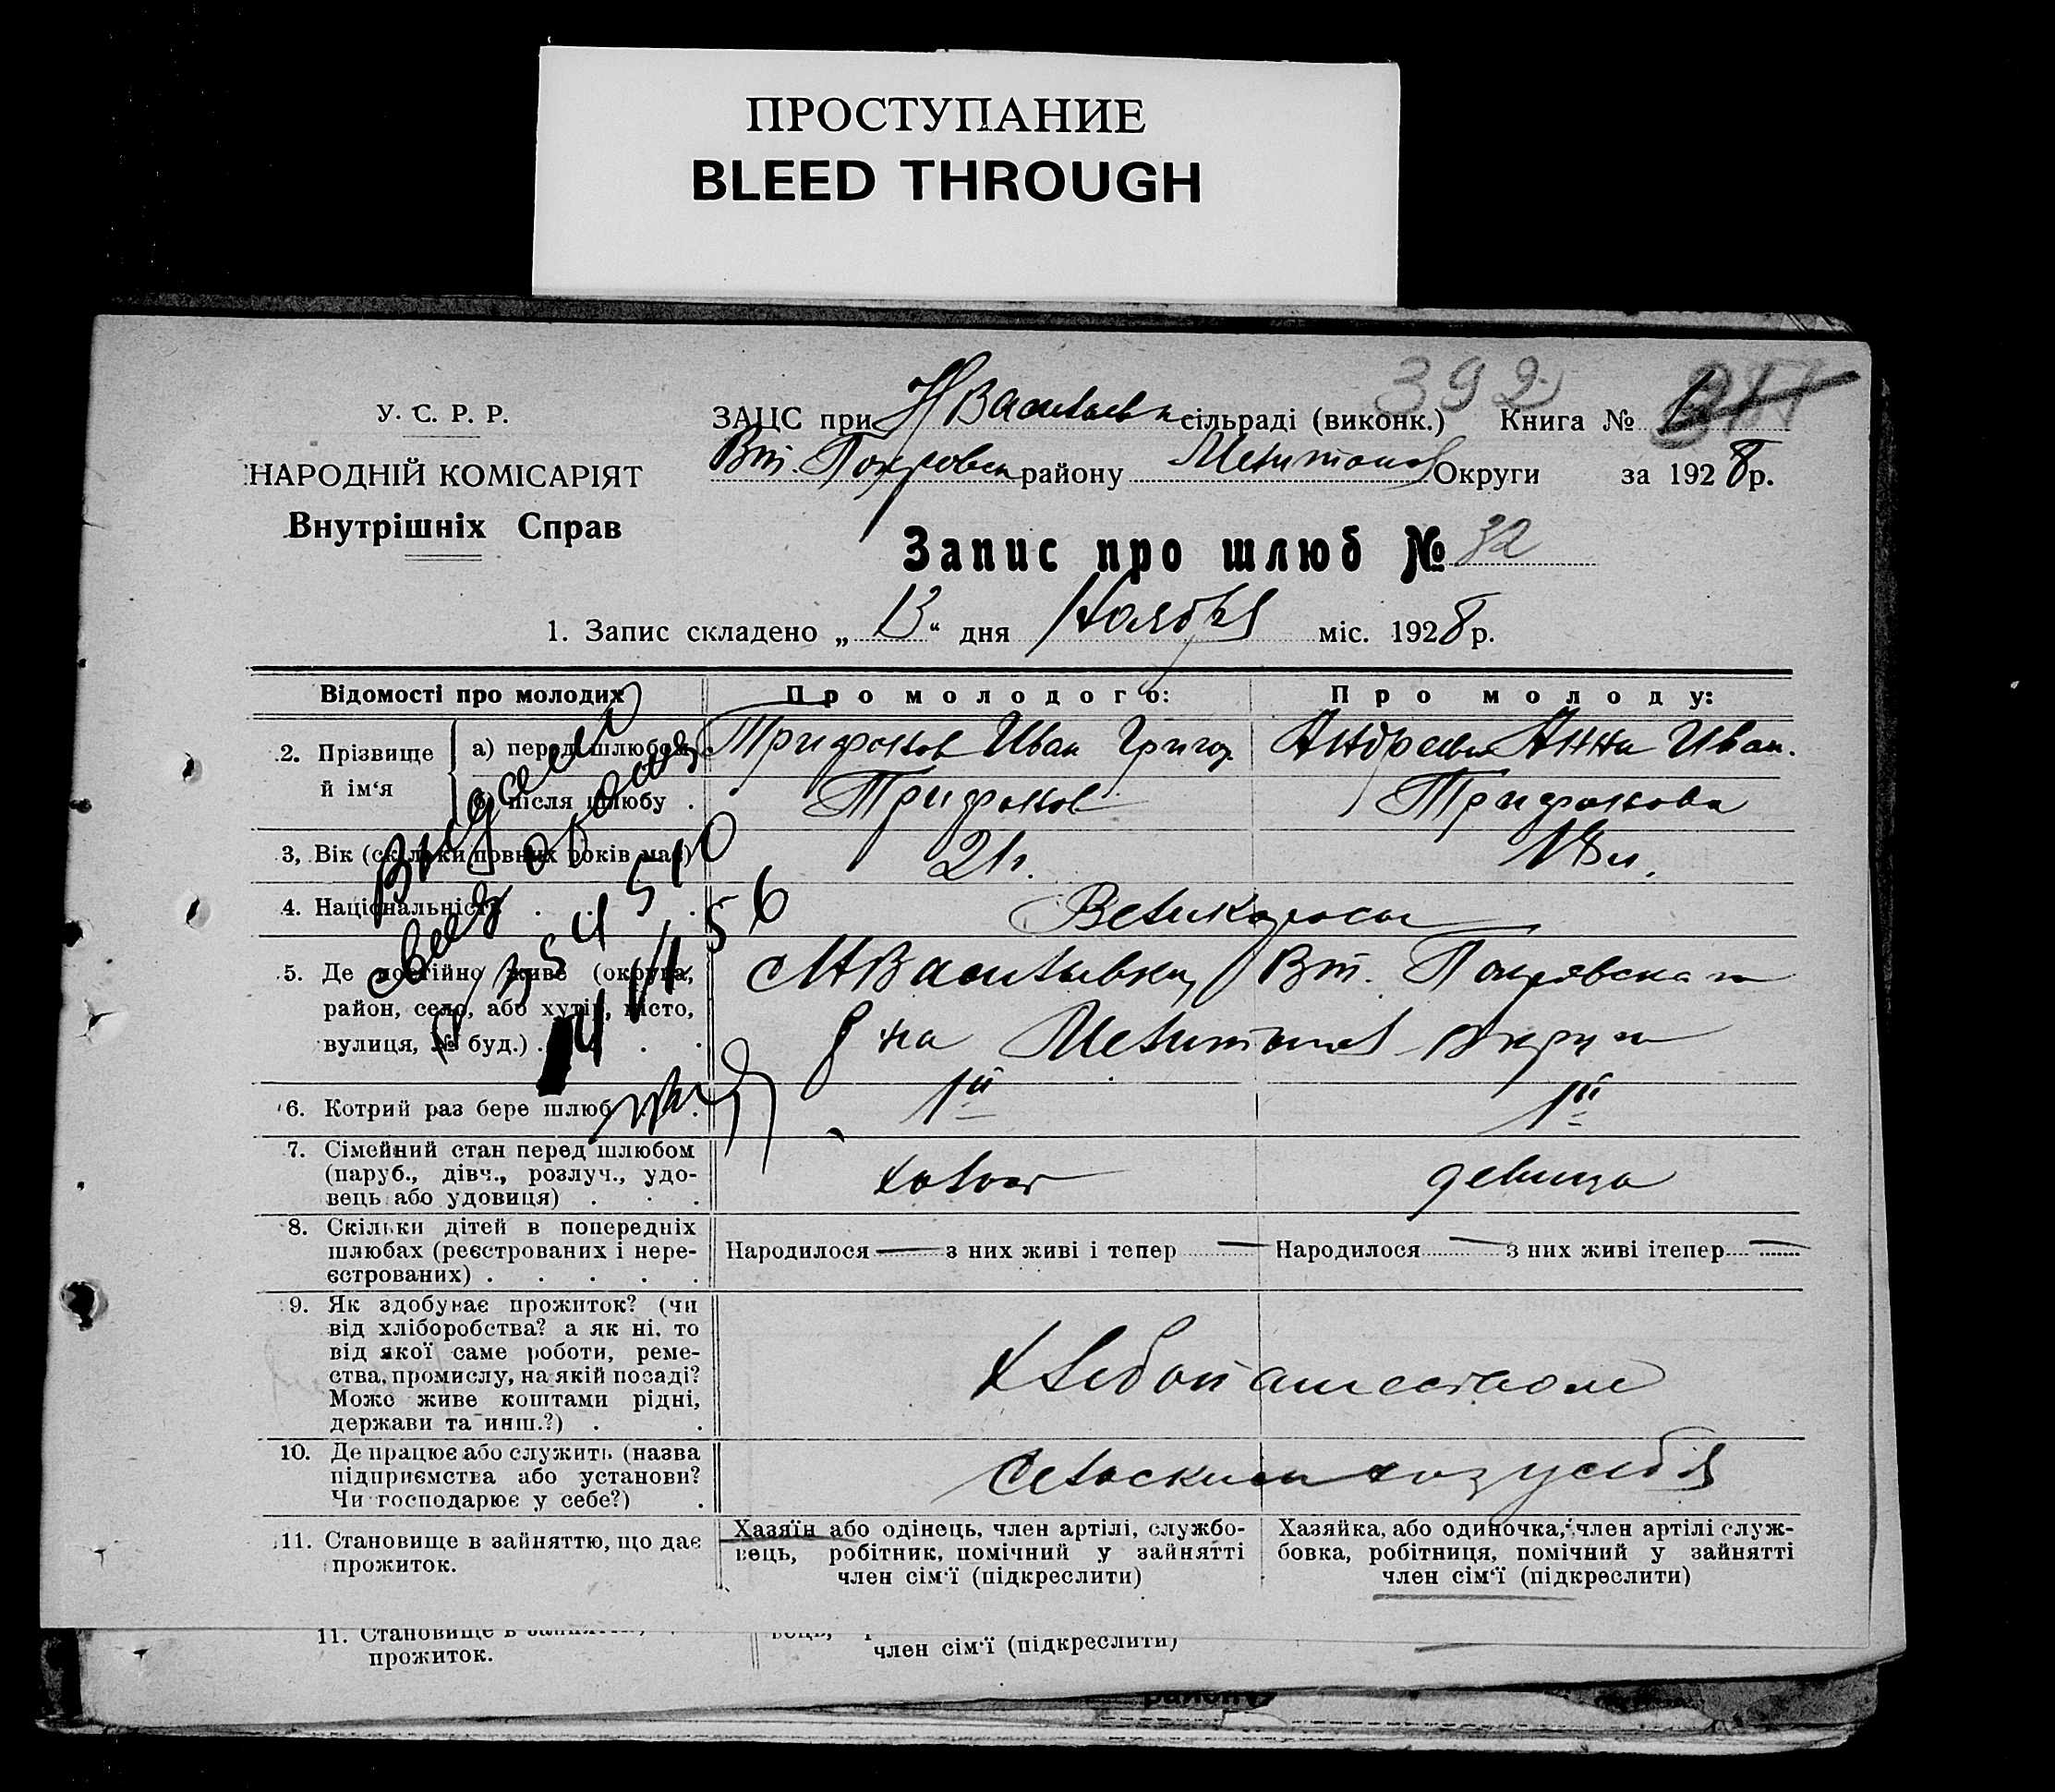 ПРОСТУПАНИЕ
BLEED THROUGH
392
У. С. Р. Р.
НАРОДНІЙ КОМІСАРІЯТ
Внутрішніх Справ
ЗАЦС при НВасильевк сільраді (виконк.) Книга №
Вт. Покровск району Мелитопол Округи за 1928 р.
Запис про шлюб № 32
1. Запис складено „ 13 “ дня Ноября міс. 1928 р.
Відомості про молодих
Про молодого:
Про молоду:
2. Прізвище й ім‘я
а) перед шлюбом
Трифонов Иван Григор.
Андреева Анна Иван.
б) після шлюбу .
Трифонов
Трифонова
3, Вік (скільки повних років має)
21 г.
18 л.
4. Національність . . .
Великоросы
5. Де постійно живе (округа,
район, село, або хутір, місто,
вулиця, № буд.) . . .
НВасильевки, Вт. Покровского
р на Мелитопол округи
6. Котрий раз бере шлюб . .
1й
1й
7. Сімейний стан перед шлюбом
(паруб., дівч., розлуч., удо-
вець або удовиця) . . .
холост
девица
8. Скільки дітей в попередніх
шлюбах (реєстрованих і нере-
єстрованих) . . . . .
Народилося — з них живі і тепер —
Народилося — з них живі ітепер —
9. Як здобуває прожиток? (чи
від хліборобства? а як ні, то
від якої саме роботи, реме-
ства, промислу, на якій посаді?
Може живе коштами рідні,
держави та инш.?) . .
Хлебопашеством
10. Де працює або служить (назва
підприємства або установи?
Чи господарює у себе?) .
Сельским хоз у себя
11. Становище в зайняттю, що дає
прожиток.
Хазяїн або одінець, член артілі, службо-
вець, робітник, помічний у зайнятті
член сім‘ї (підкреслити)
Хазяйка, або одиночка, член артілі служ-
бовка, робітниця, помічний у зайнятті
член сім‘ї (підкреслити)
Выдано
свид о
11. Становище в
прожиток.
член сім‘ї (підкреслити)